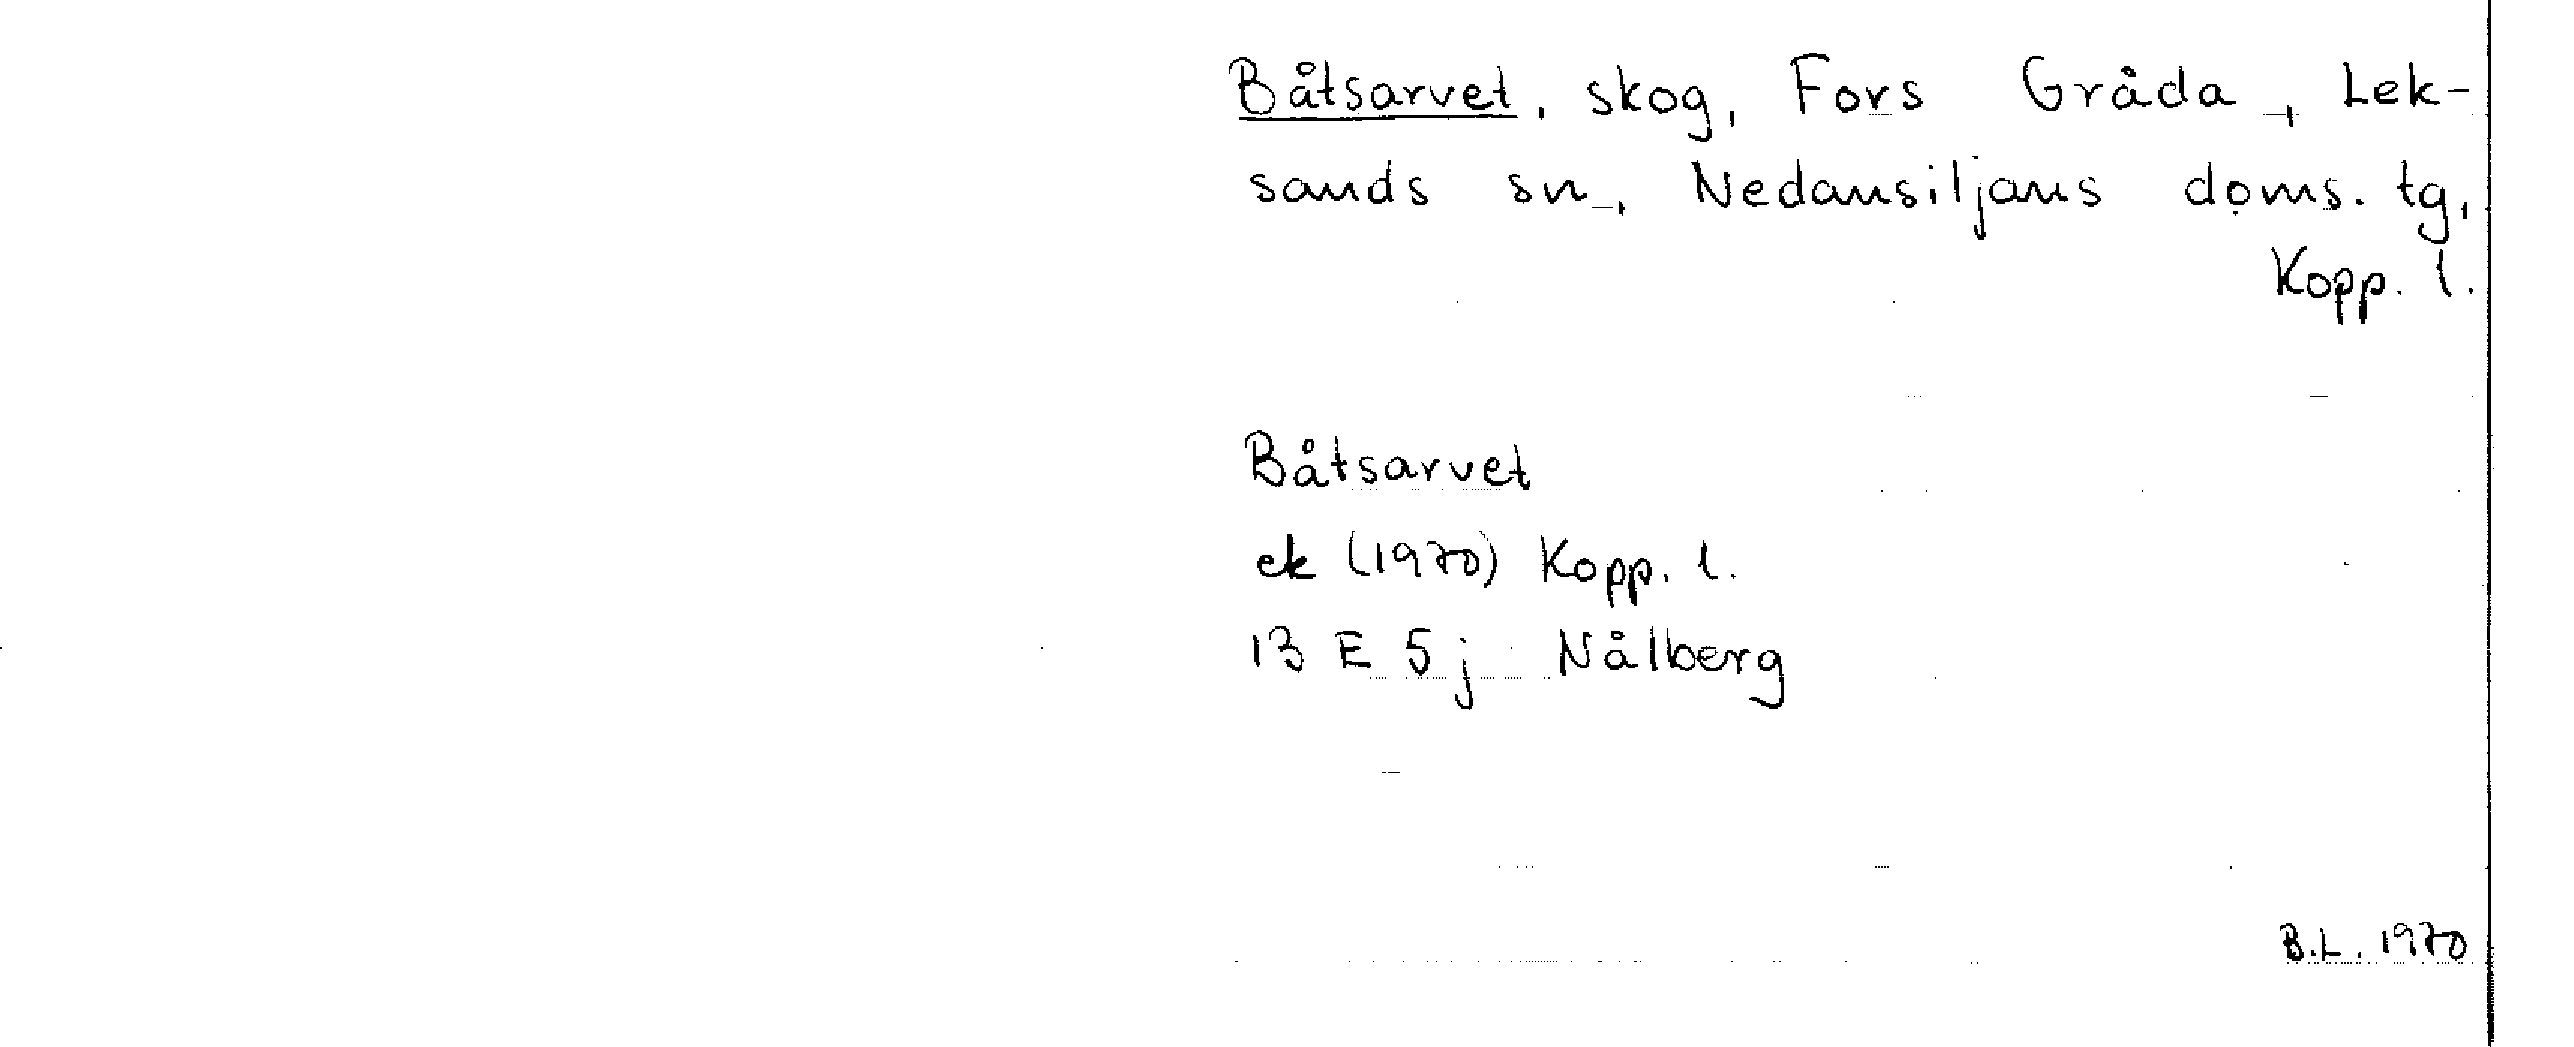 Båtsarvet, skog, Fors Gråda, Lek-
sands sn, Nedansiljans doms. tg,
Kopp. l.
Båtsarvet
ek (1970) Kopp. l.
13 E 5 j Nålberg
B.L. 1970